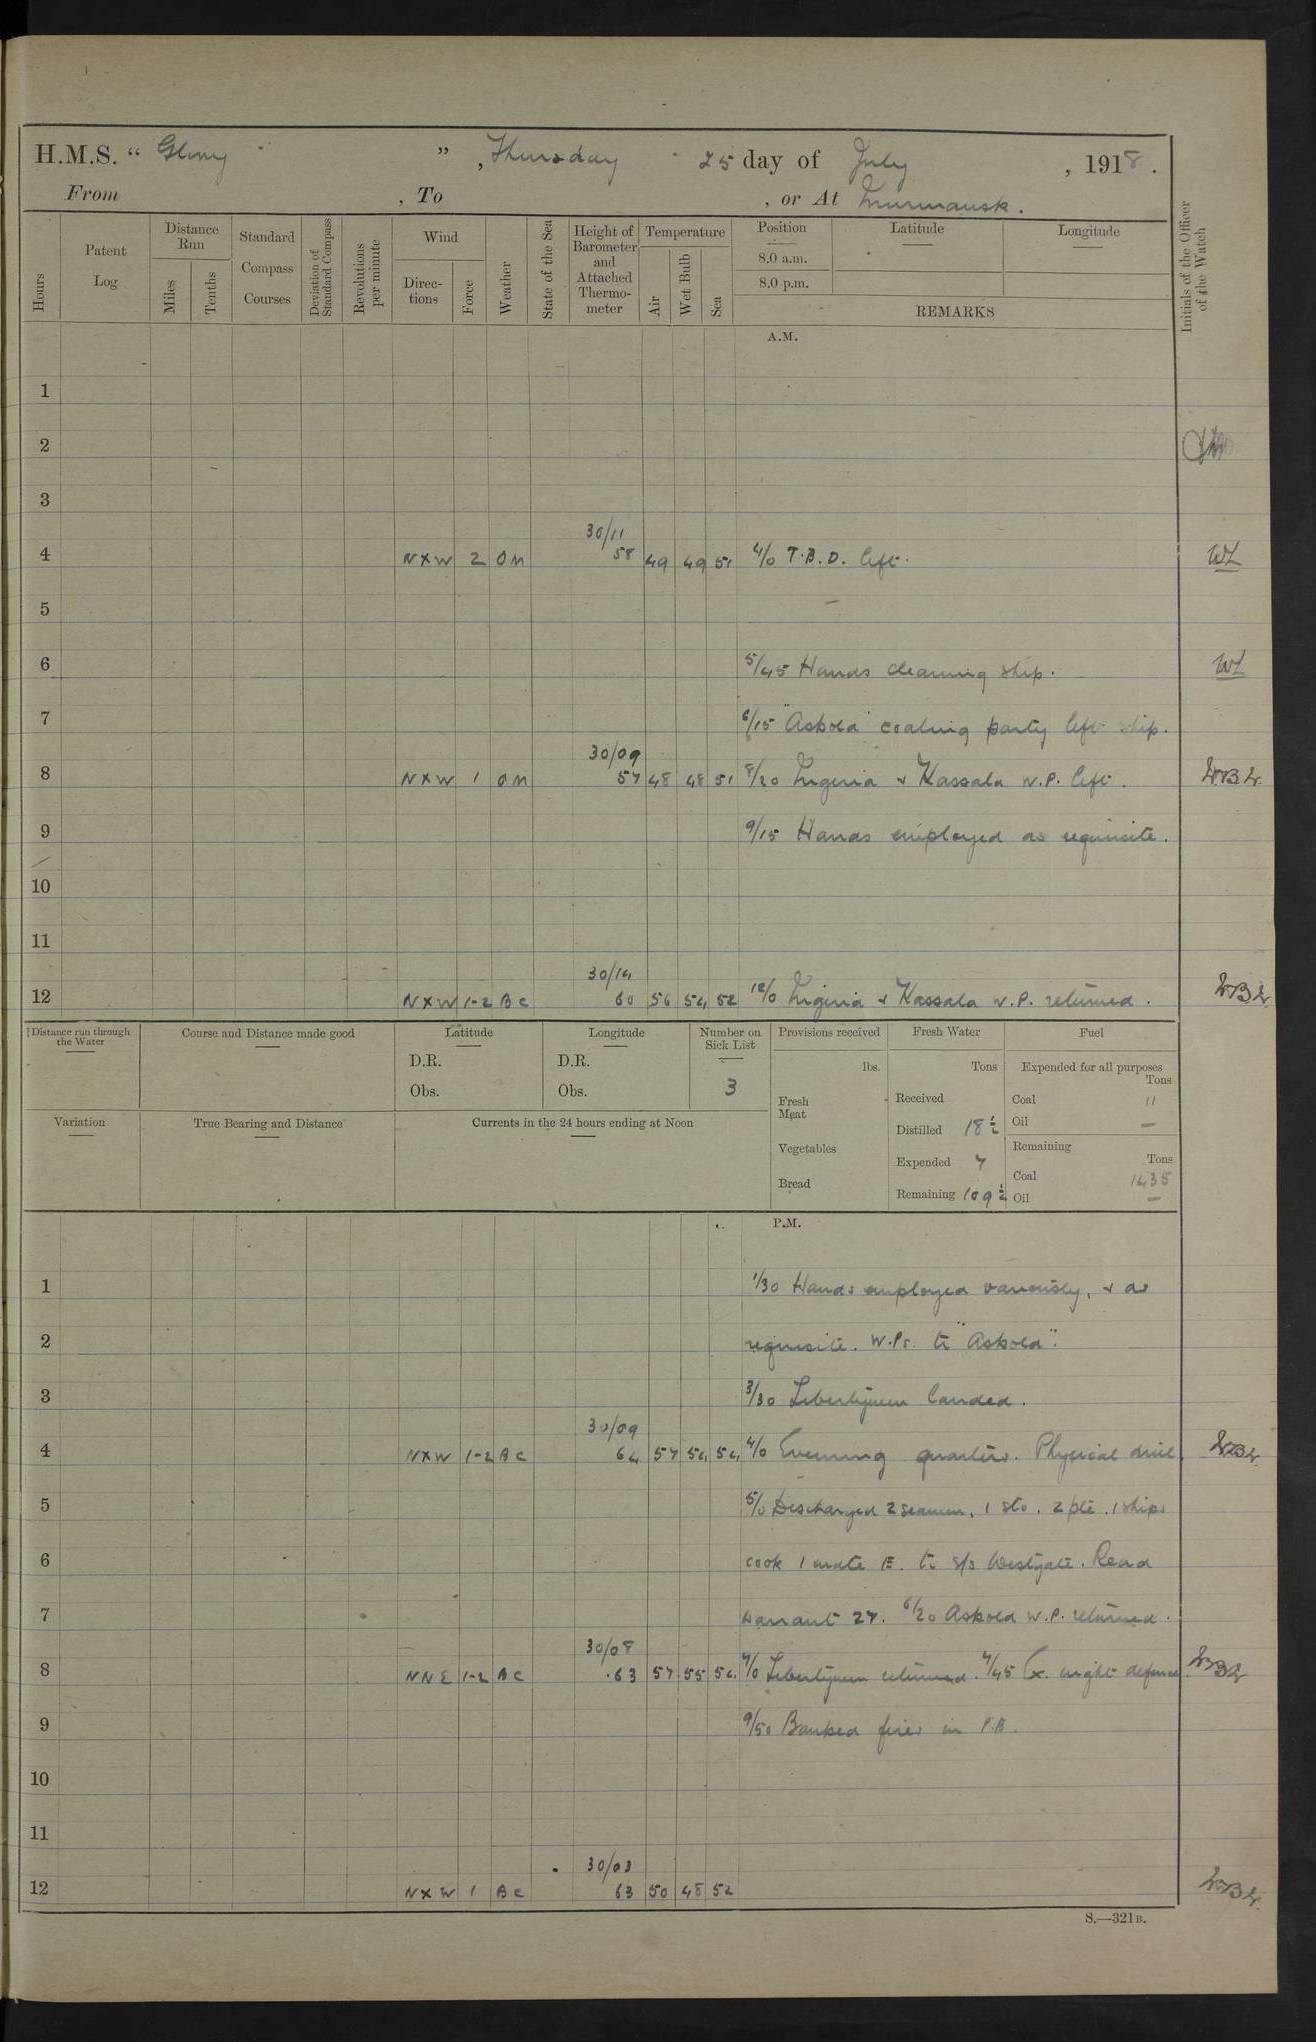 H.M.S. " Glory " , Thursday 25 day of July , 1918 .
From , To , or At Murmansk.
Hours
Patent Log
Distance Run
Miles
Tenths
Standard Compass Courses
Deviation of Standard Compass
Revolutions per minute
Wind
Directions
Force
Weather
State of the Sea
Height of Barometer and Attached Thermometer
Temperature
Air
Wet Bulb
Sea
Position
8.0 a.m.
8.0 p.m.
Latitude
Longitude
REMARKS
Initials of the Officer of the Watch
A.M.
1
2
3
30/11
4 NXW 2 OM 58 49 49 51 4/0 T.B.D. left. WL
5
6 5/45 Hands cleaning ship. WL
7 6/15 "Askold" coaling party left ship.
30/09
8 NXW 1 OM 57 48 48 51 8/20 Nigeria & Kassala W.P. left.
9 9/15 Hands employed as requisite.
10
11
30/14
12 NXW 1-2 BC 60 56 54 52 12/0 Nigeria & Kassala W.P. returned.
Distance run through the Water
Course and Distance made good
Latitude
D.R.
Obs.
Longitude
D.R.
Obs.
Number on Sick List
3
Provisions received
lbs.
Fresh Meat
Vegetables
Bread
Fresh Water
Tons
Received
Distilled 18½
Expended 7
Remaining 109½
Fuel
Expended for all purposes
Tons
Coal 11
Oil —
Remaining
Tons
Coal 1435
Oil —
Variation
True Bearing and Distance
Currents in the 24 hours ending at Noon
P.M.
1 1/30 Hands employed variously, & as
2 requisite. W.Ps. to "Askold".
3 3/30 Libertymen landed.
30/09
4 NXW 1-2 BC 64 57 54 54 4/0 Evening quarters. Physical drill.
5 5/0 Discharged 2 seamen, 1 sto. 2 pte. 1 ships
6 cook 1 mate E. to s/s Westgate. Read
7 warrant 27. 6/20 Askold W.P. returned.
30/08
8 NNE 1-2 BC 63 57 55 54 7/0 Libertymen returned. 7/45 Ex. night defence
9 9/50 Banked fires in P.B.
10
11
30/03
12 NXW 1 BC 63 50 48 52
S.—321B.